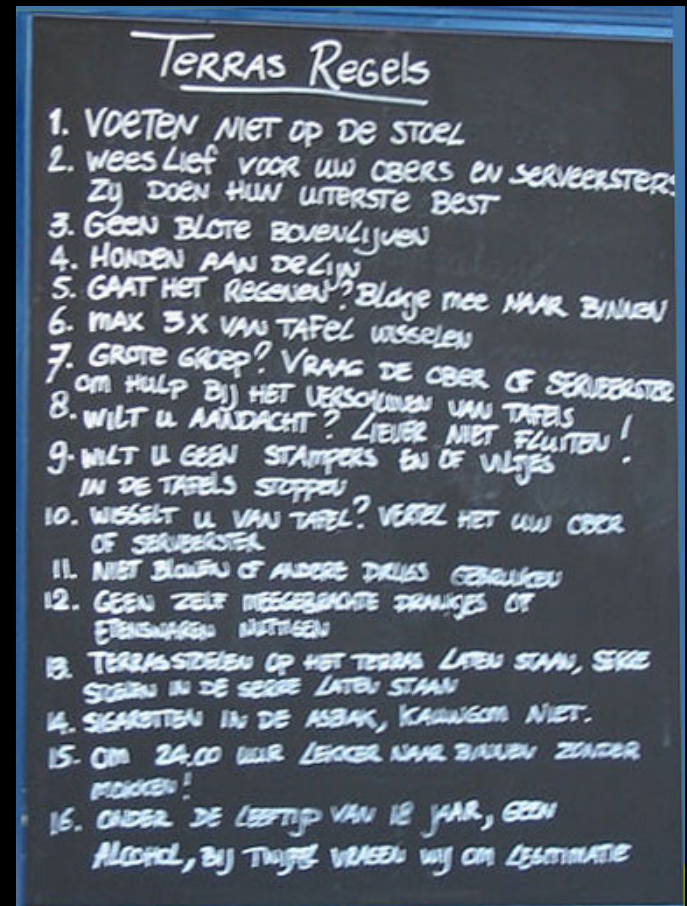 Terras Regels
1. VOETEN NIET OP DE STOEL
2. WEES LIEF VOOR UW OBERS EN SERVEERSTERS
ZIJ DOEN HUN UITERSTE BEST
3. GEEN BLOTE BOVENLIJVEN
4. HONDEN AAN DE LIJN
5. GAAT HET REGENEN? Bladje mee NAAR BINNEN
6. MAX 3X VAN TAFEL WISSELEN
7. GROTE GROEP? VRAAG DE OBER OF SERVEERSTER
OM HULP BIJ HET VERSCHUIVEN VAN TAFELS
8. WILT U AANDACHT? LIEVER NIET FLUITEN!
9. WILT U GEEN STAMPERS EN OF VILTJES
IN DE TAFELS STOPPEN
10. WISSELT U VAN TAFEL? VERTEL HET UW OBER
OF SERVEERSTER
11. NIET BLOWEN OF ANDERE DRUGS GEBRUIKEN
12. GEEN ZELF MEEGEBRACHTE DRANKJES OF
ETENSWAREN NUTTIGEN
13. TERRASSTOELEN OP HET TERRAS LATEN STAAN, SERRE
STOELEN IN DE SERRE LATEN STAAN
14. SIGARETTEN IN DE ASBAK, KAUWGOM NIET.
15. OM 24.00 UUR LEKKER NAAR BINNEN ZONDER
MOKKEN!
16. ONDER DE LEEFTIJD VAN 18 JAAR, GEEN
ALCOHOL, BIJ TWIJFEL VRAGEN WIJ OM LEGITIMATIE